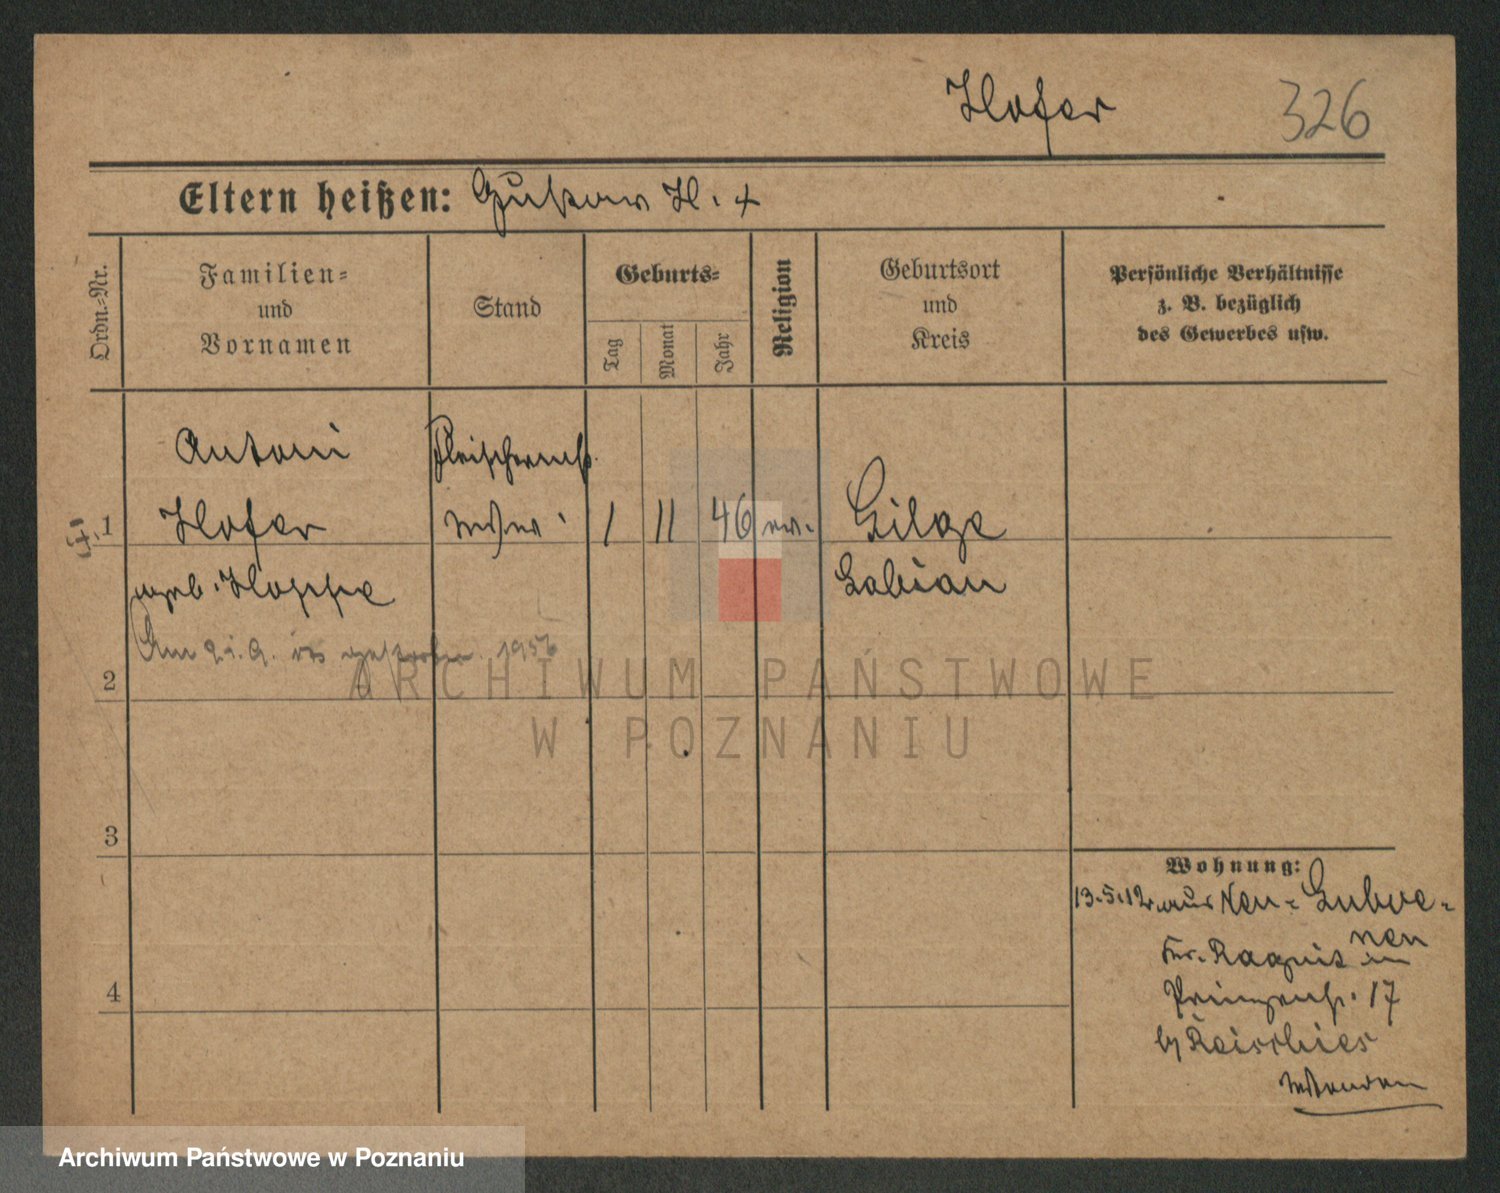 Hofer 326
Eltern heißen: Gustav H. +
Ordn.-Nr.
Familien-
und
Vornamen
Stand
Geburts-
Tag
Monat
Jahr
Religion
Geburtsort
und
Kreis
Persönliche Verhältnisse
z. B. bezüglich
des Gewerbes usw.
Antoni Fleischermstr.
1 Hofer 1 11 46 ev. Gilge
geb. Hoppe Labiau
Am gestorben.
2
3
4
Wohnung:
13.5.12 aus Neu-Luboe-
nen
Kr. Ragnit in
Prinzenstr. 17
b/
Wenden
ARCHIWUM PAŃSTWOWE
W POZNANIU
Archiwum Państwowe w Poznaniu